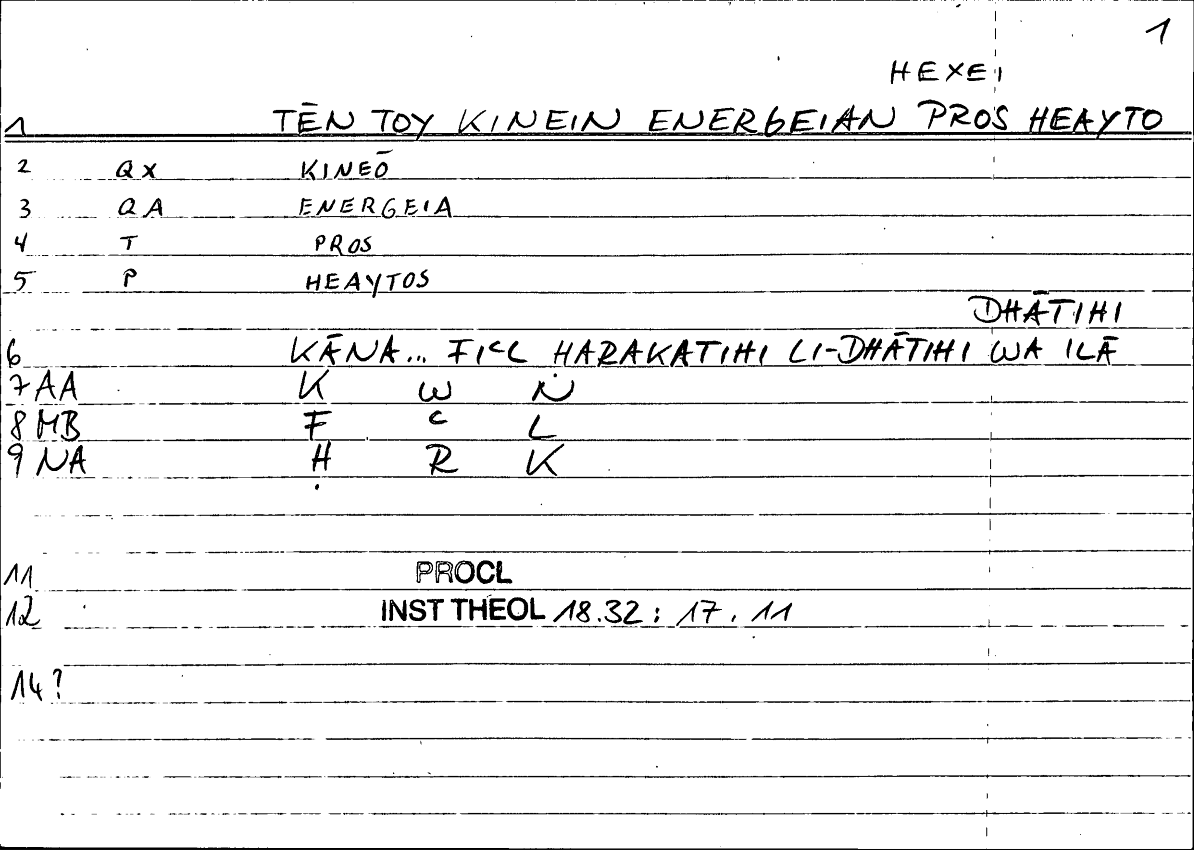 1
HEXEI
1 TĒN TOY KINEIN ENERGEIAN PROS HEAYTO
2 QX KINEŌ
3 QA ENERGEIA
4 T PROS
5 P HEAYTOS
DHĀTIHI
6 KĀNA... FIᶜL ḤARAKATIHI LI-DHĀTIHI WA ILĀ
7 AA K W N
8 MB F ᶜ L
9 NA Ḥ R K
11 PROCL
12 INST THEOL 18.32 : 17.11
14?